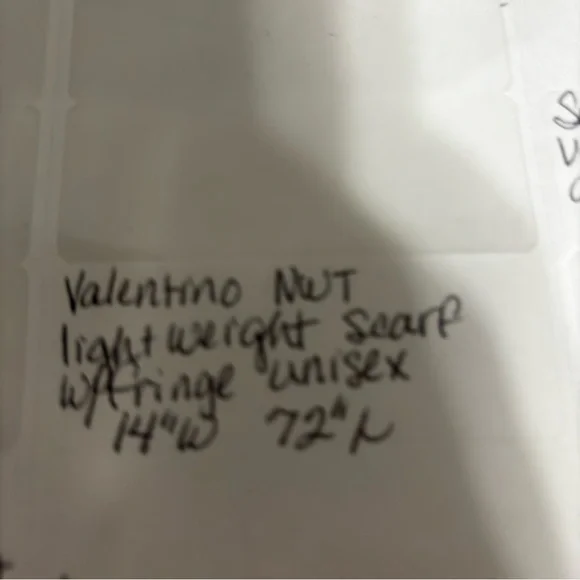 Valentino NWT
lightweight Scarf
w/fringe unisex
14"W 72"L